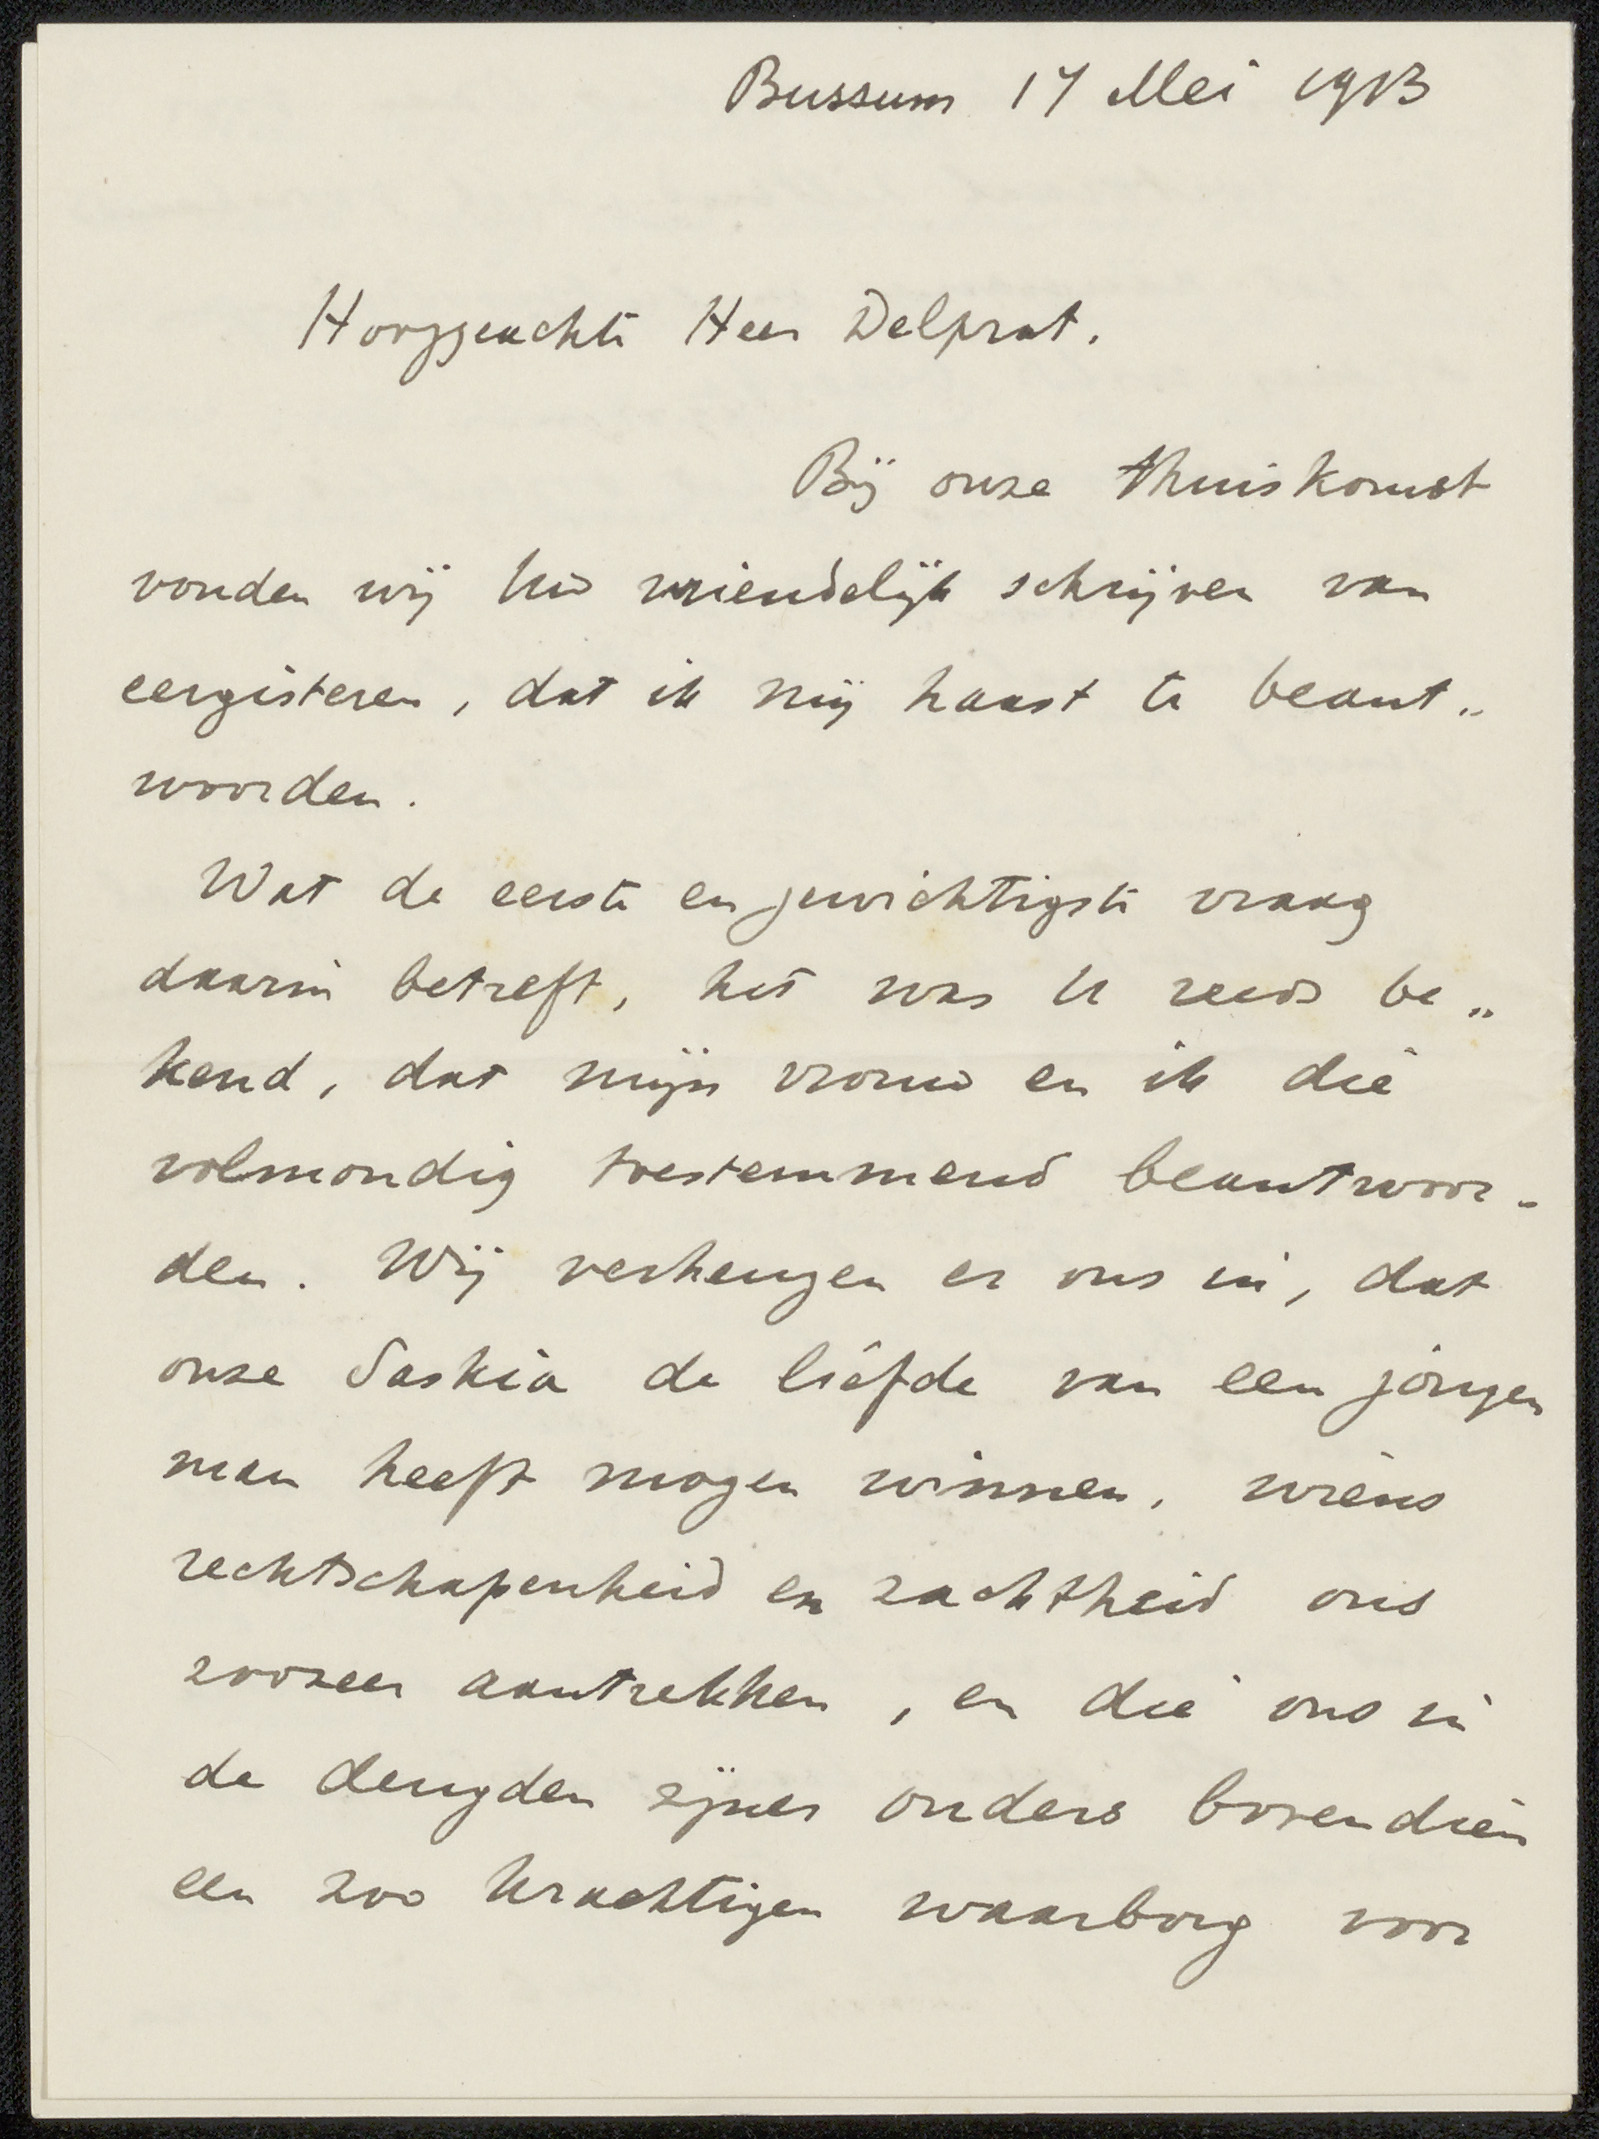 Bussum 17 Mei 1913
Hooggeachte Heer Delprat.
Bij onze thuiskomst
vonden wij Uw vriendelijk schrijven van
eergisteren, dat ik mij haast te beant„
woorden.
Wat de eerste en gewichtigste vraag
daarin betreft, het was U reeds be„
kend, dat mijn vrouw en ik die
volmondig toestemmend beantwoor-
den. Wij verheugen er ons in, dat
onze Saskia de liefde van een jongen
man heeft mogen winnen, wiens
rechtschapenheid en zachtheid ons
zoozeer aantrekken, en die ons in
de deugden zijner ouders bovendien
een zoo krachtigen waarborg voor